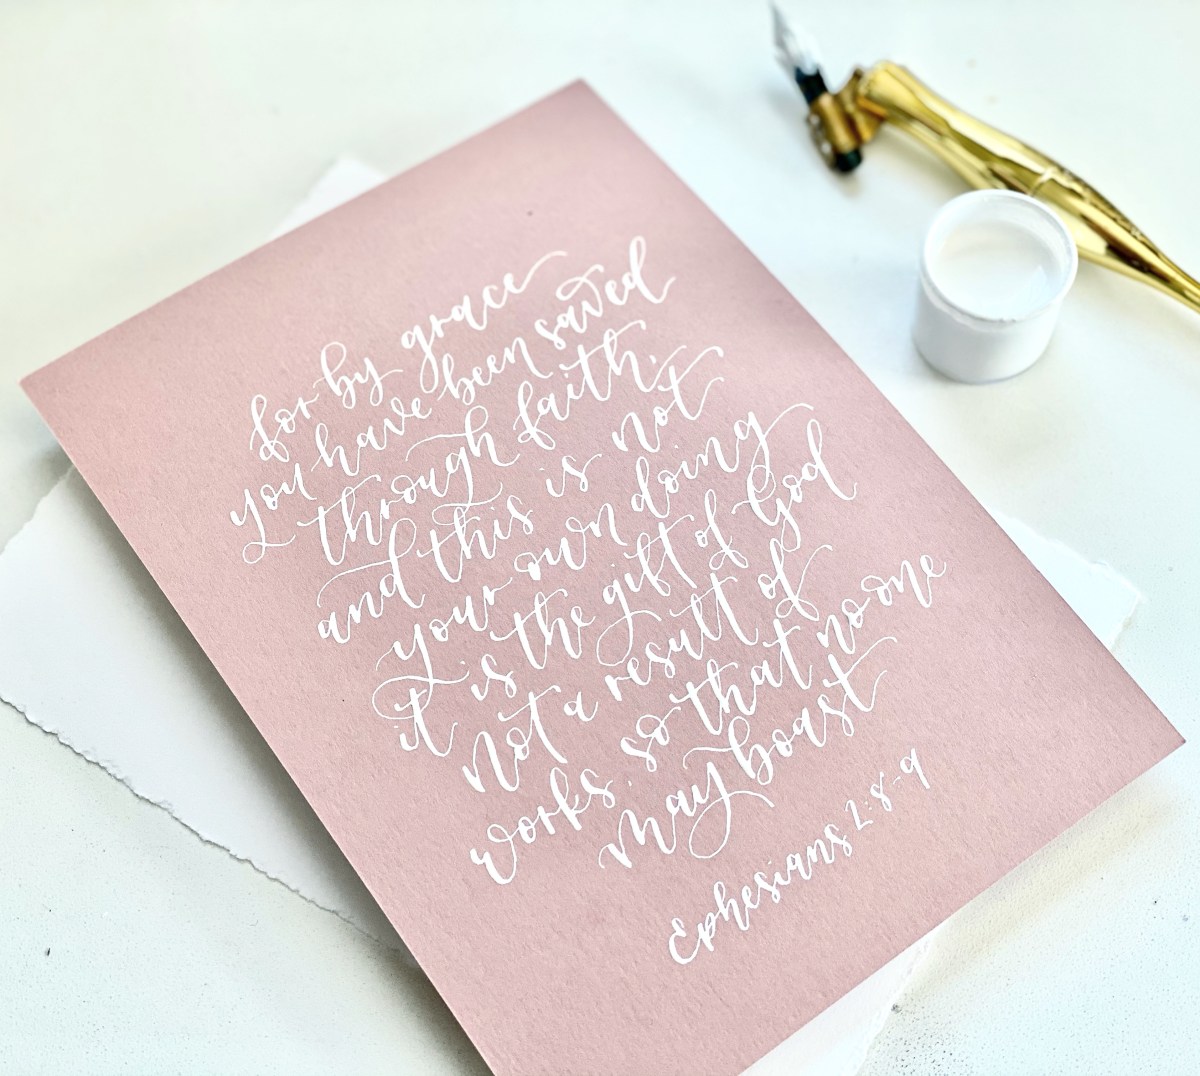 for by grace
you have been saved
through faith.
and this is not
your own doing
it is the gift of God
not a result of
works, so that no one
may boast
Ephesians 2:8-9